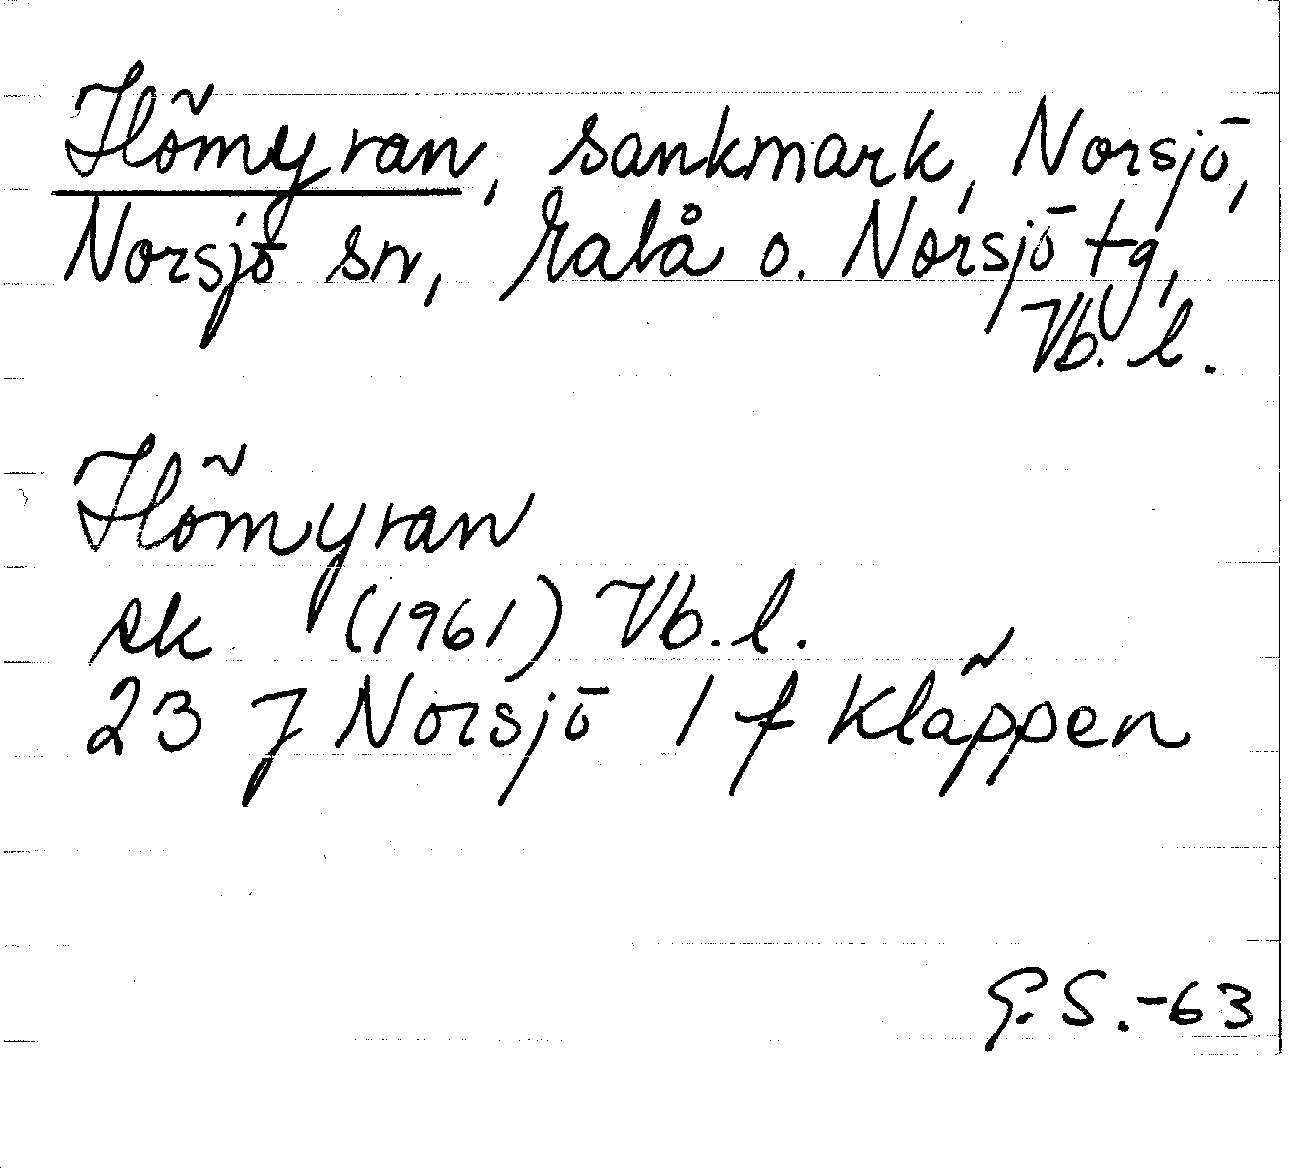 Hömyran, sankmark, Norsjö,
Norsjö sn, Malå o. Norsjö tg,
Vb. l.
Hömyran
sk (1961) Vb. l.
23 J Norsjö 1 f Kläppen
G. S. -63